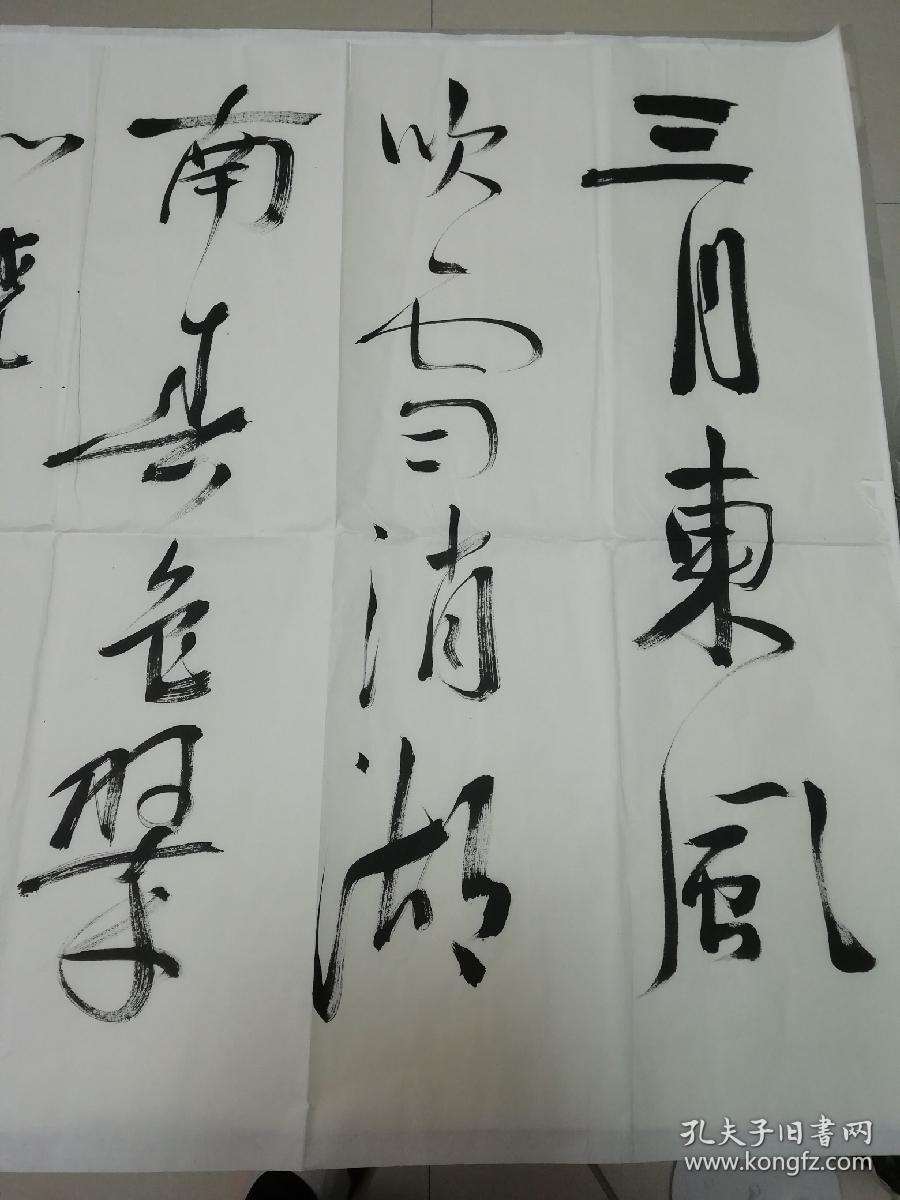 三月東風
吹雪消湖
南春色翠
孔夫子旧書网
www.kongfz.com